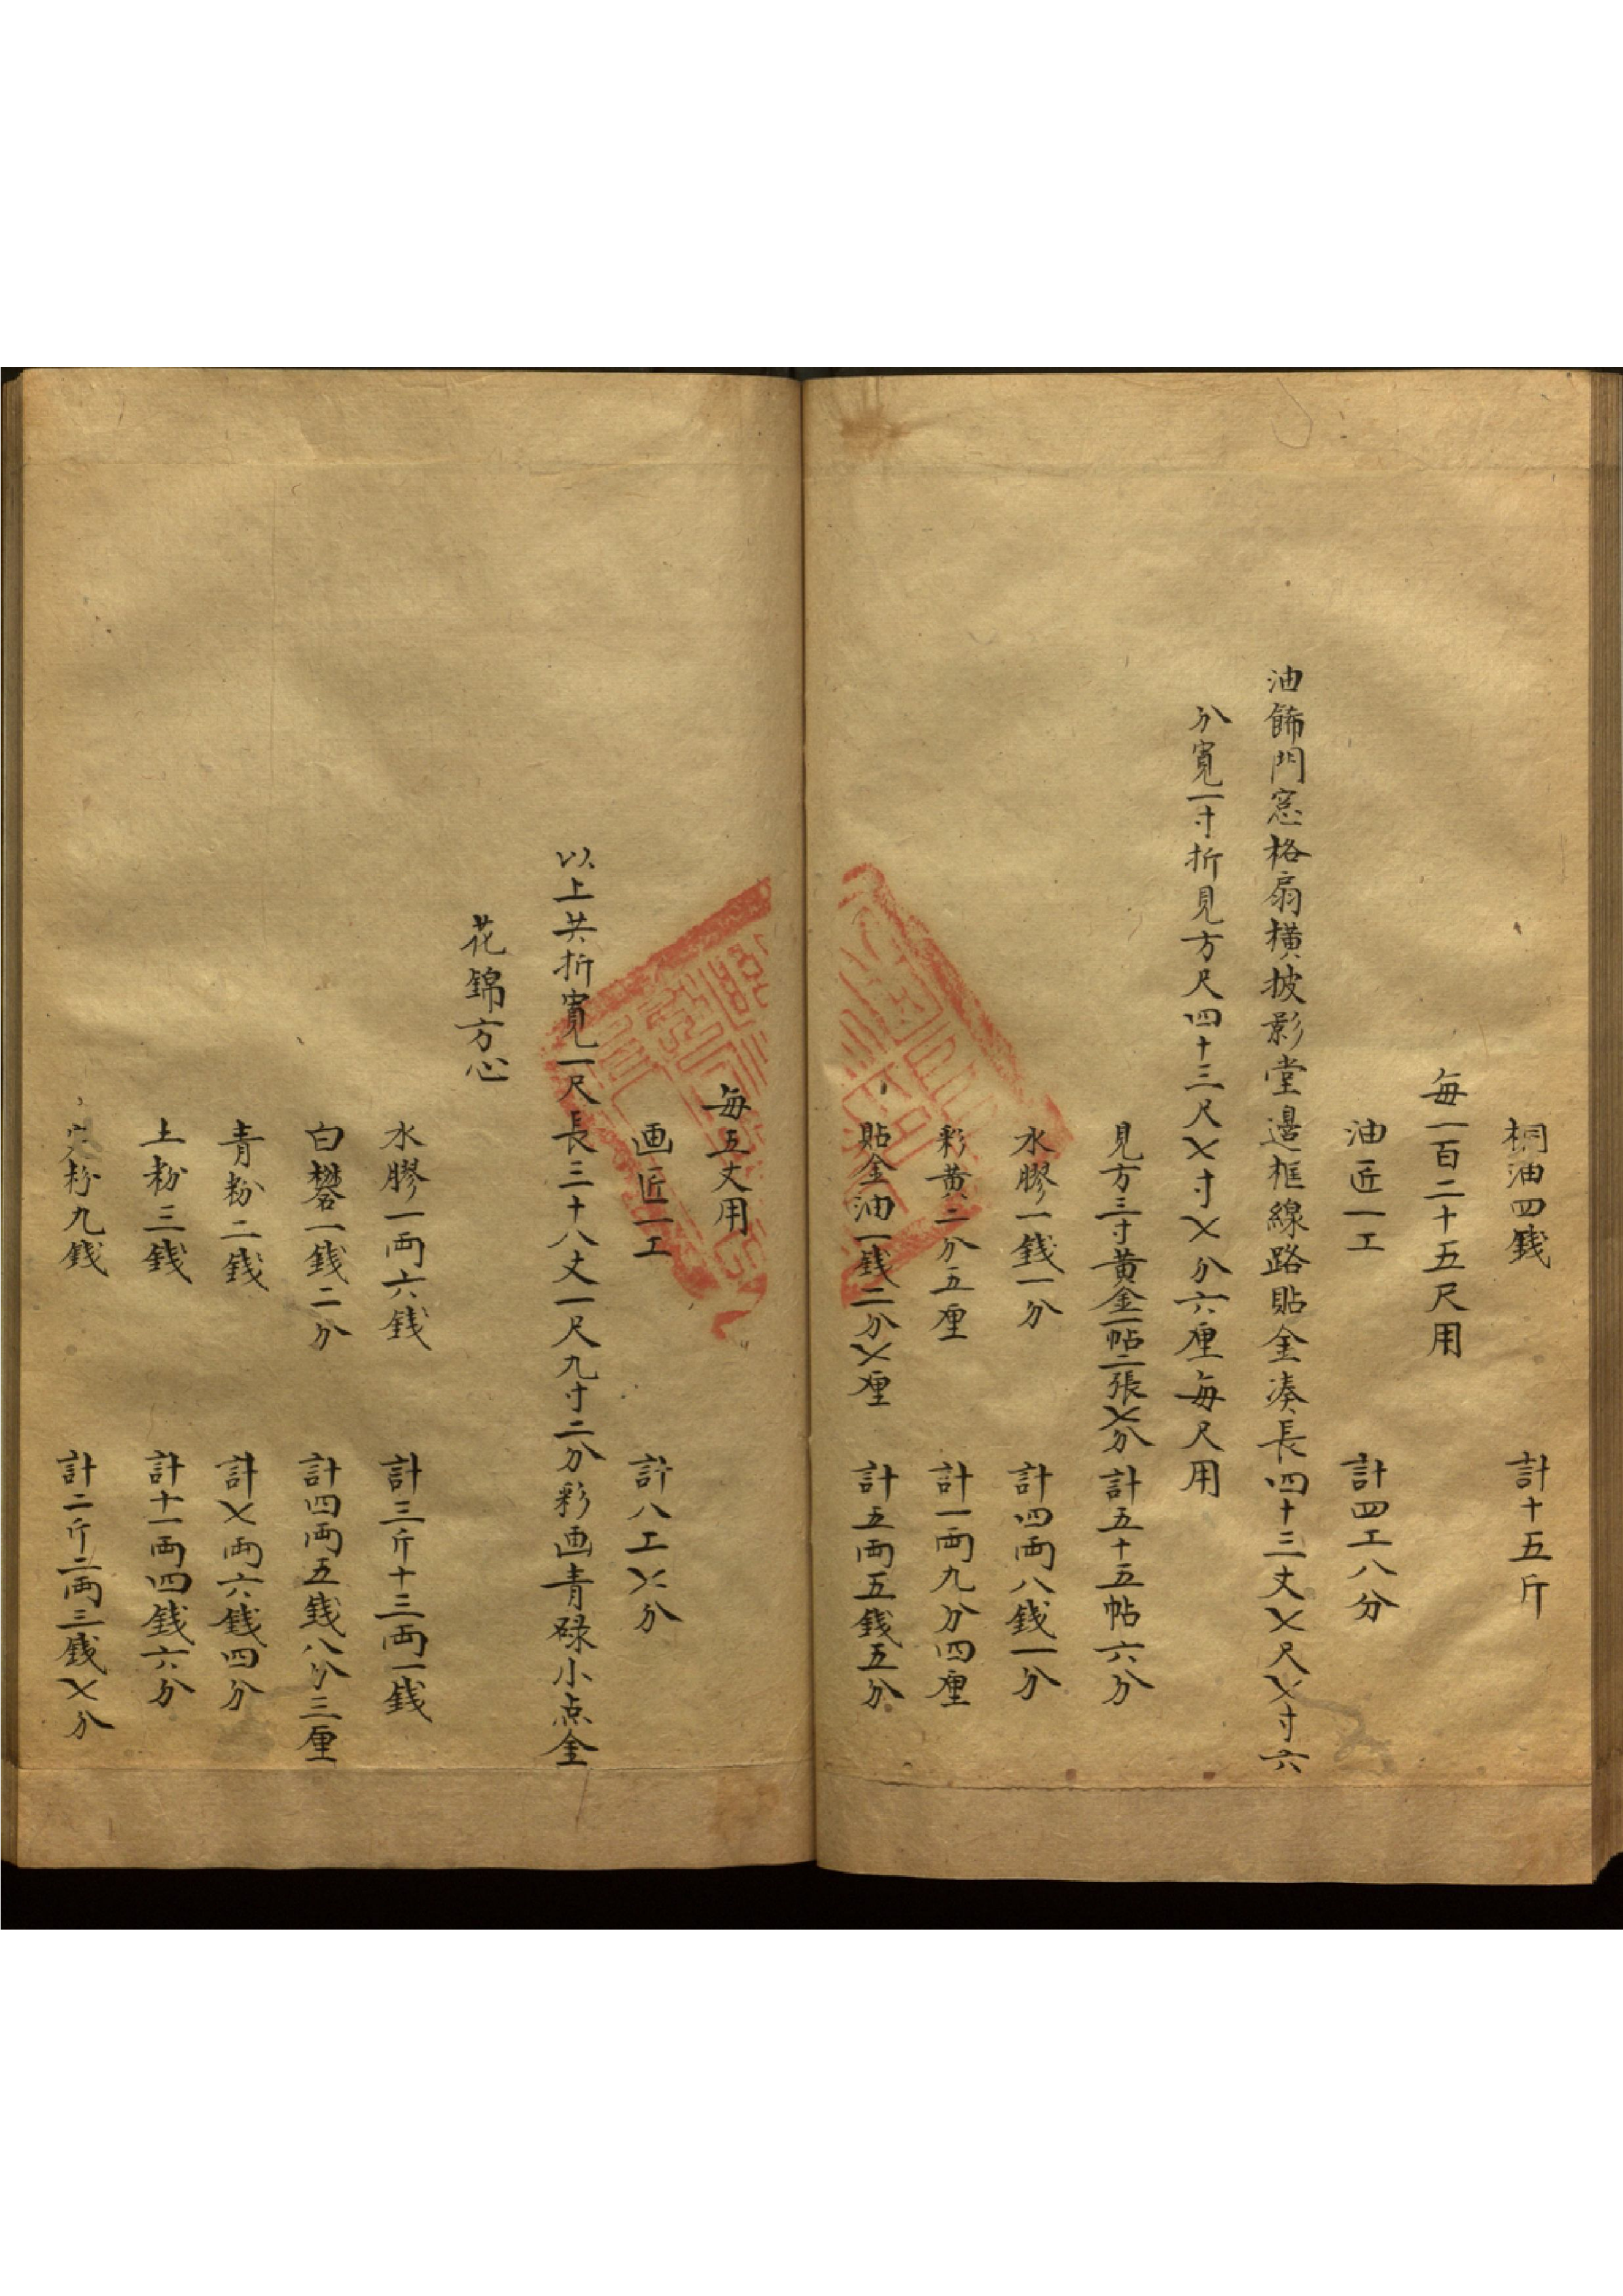 桐油四錢 計十五斤
每一百二十五尺用
油匠一工 計四工八分
油餙門窓格扇橫披影堂邊框線路貼金凑長四十三丈七尺七寸六
分寬一寸折見方尺四十三尺七寸七分六厘每尺用
見方三寸黄金一帖二張七分 計五十五帖六分
水膠一錢一分 計四兩八錢一分
彩黄二分五厘 計一兩九分四厘
貼金油一錢二分七厘 計五兩五錢五分
每五丈用
画匠一工 計八工七分
以上共折寬一尺長三十八丈一尺九寸二分彩画青碌小点金
花錦方心
水膠一兩六錢 計三斤十三兩一錢
白礬一錢二分 計四兩五錢八分三厘
青粉二錢 計七兩六錢四分
土粉三錢 計十一兩四錢六分
定粉九錢 計二斤二兩三錢七分